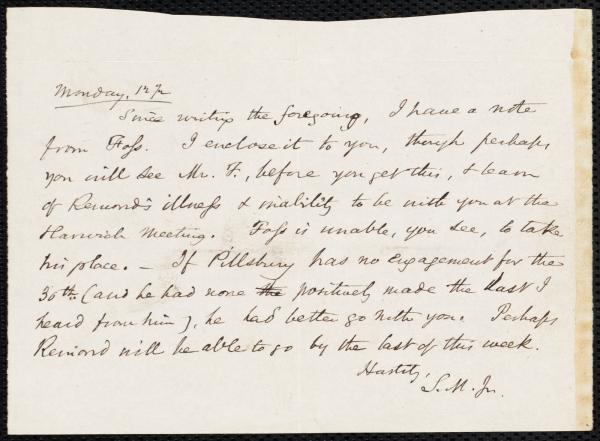 Monday, 12 ½
Since writing the foregoing, I have a note
from Foss. I enclose it to you, though perhaps
you will see Mr. F., before you get this, & learn
of Remond's illness & inability to be with you at the
Harwich meeting. Foss is unable, you see, to take
his place. — If Pillsbury has no engagement for the
30th. (and he had none the positively made the last I
heard from him), he had better go with you. Perhaps
Remond will be able to go by the last of this week.
Hastily,
S. M. Jr.